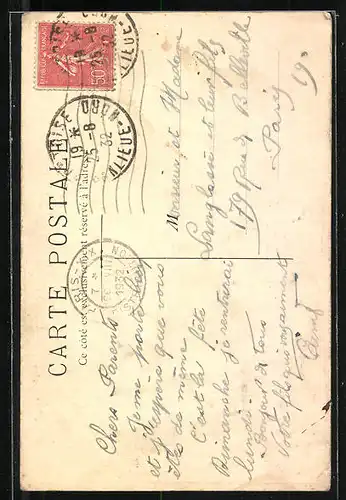 CARTE POSTALE
Ce côté est exclusivement réservé à l'adresse
50
19 * 25-8 32
BANLIEUE
19 * 25-8 32
BANLIEUE
1932
Monsieur et Madame
179 Rue de Belleville
Paris 19
Chers Parents
Je me porte bien
et j'espère que vous
êtes de même
C'est la fête
Dimanche je rentrerai
lundi
Bonjour à tous
Votre fils qui vous aime